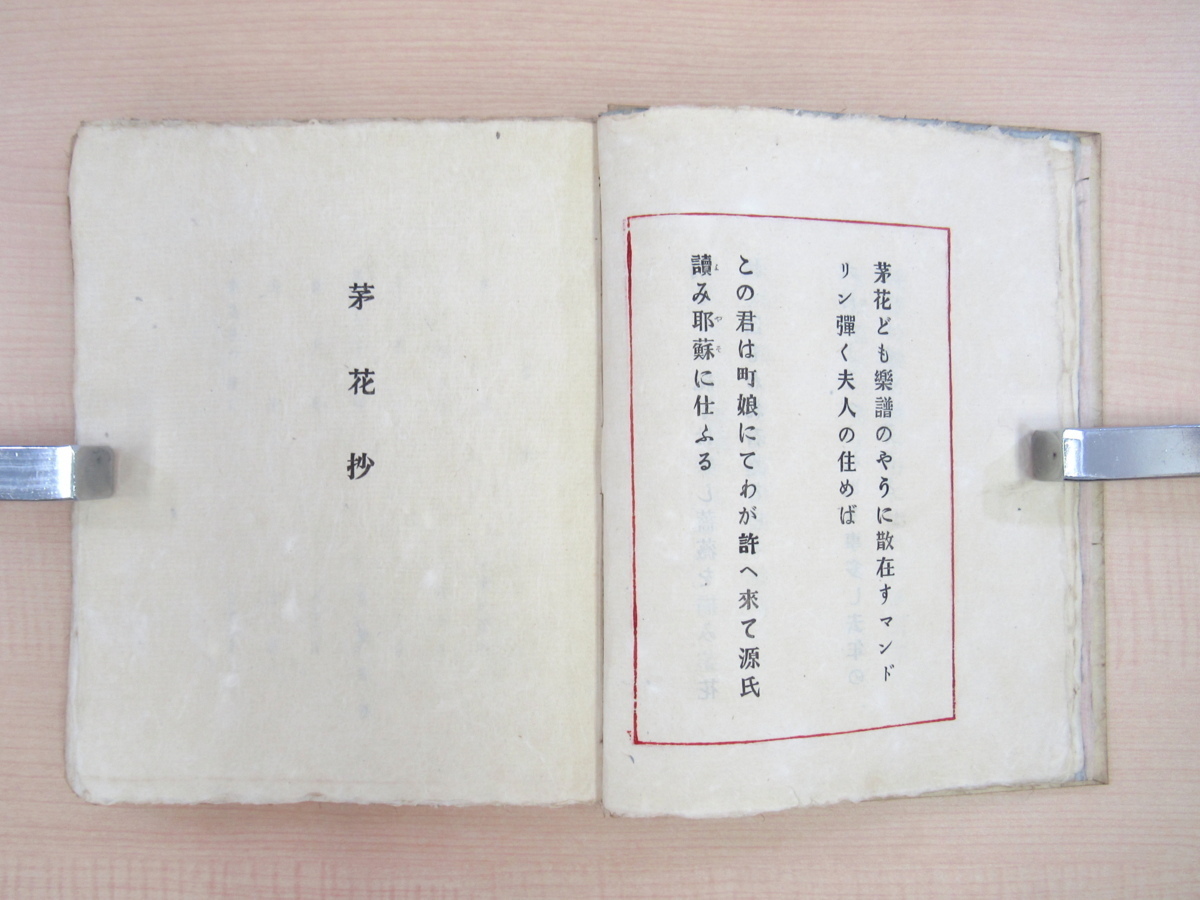 茅花ども樂譜のやうに散在すマンド
リン彈く夫人の住めば
この君は町娘にてわが許へ來て源氏
讀み耶蘇に仕ふる
茅花抄